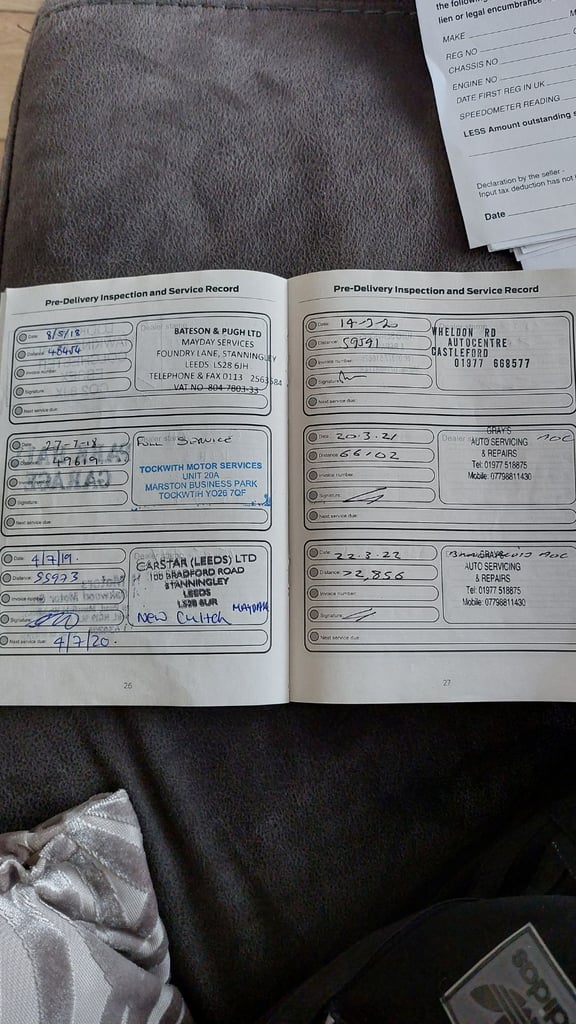 the following
lien or legal encumbrance
MAKE
REG NO
CHASSIS NO
ENGINE NO
DATE FIRST REG IN UK
SPEEDOMETER READING
LESS Amount outstanding
Declaration by the seller -
Input tax deduction has not
Date
Pre-Delivery Inspection and Service Record
Date: 8/5/18
Distance: 48454
Invoice number:
Signature:
Next service due:
BATESON & PUGH LTD
MAYDAY SERVICES
FOUNDRY LANE, STANNINGLEY
LEEDS LS28 6JH
TELEPHONE & FAX 0113 2563584
VAT NO 804 7803 33
Date: 27-7-18
Distance: 49619
Invoice number:
Signature:
Next service due:
Full Service
TOCKWITH MOTOR SERVICES
UNIT 20A
MARSTON BUSINESS PARK
TOCKWITH YO26 7QF
Date: 4/7/19.
Distance: 55973
Invoice number:
Signature:
Next service due: 4/7/20.
CARSTAR (LEEDS) LTD
100 BRADFORD ROAD
STANNINGLEY
LEEDS
LS28 6UR
New
26
Pre-Delivery Inspection and Service Record
Date:
Distance: 59541
Invoice number:
Signature:
Next service due:
WHELDON RD
AUTOCENTRE
CASTLEFORD
01977 668577
Date: 20.3.21
Distance: 66102
Invoice number:
Signature:
Next service due:
GRAY'S
AUTO SERVICING
& REPAIRS
Tel: 01977 518875
Mobile: 07798811430
Date: 22.3.22
Distance: 72,856
Invoice number:
Signature:
Next service due:
GRAY'S
AUTO SERVICING
& REPAIRS
Tel: 01977 518875
Mobile: 07798811430
27
adidas